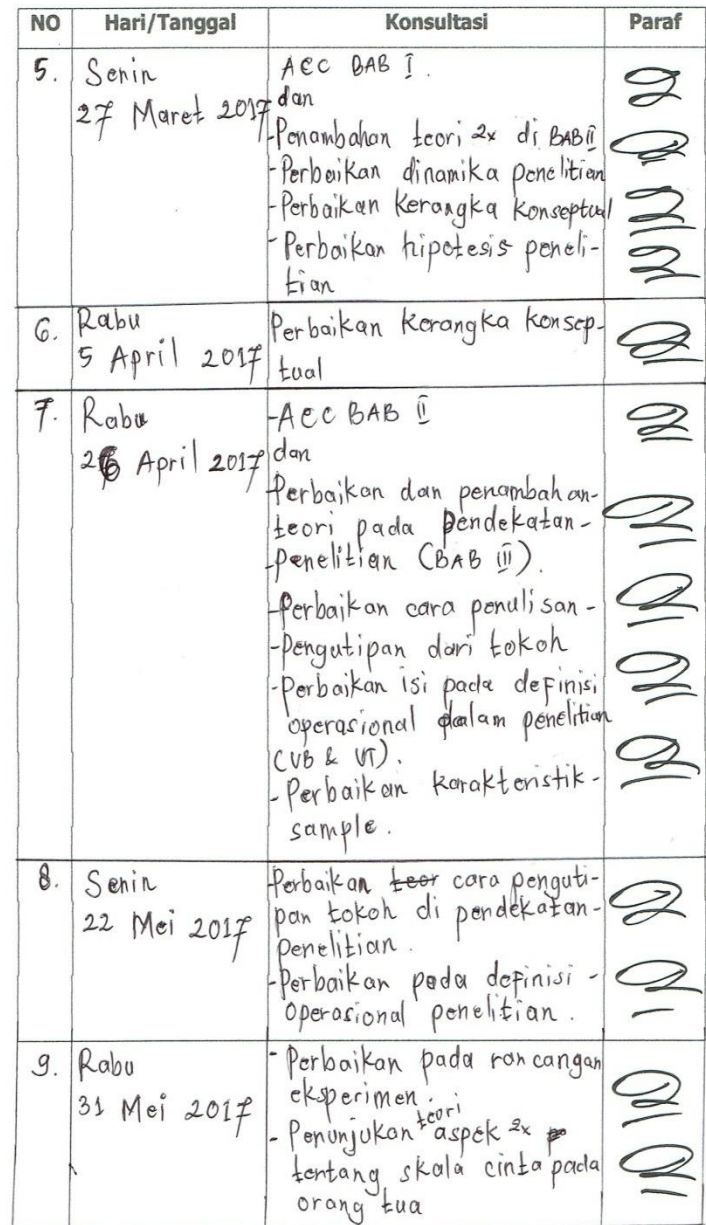 NO Hari/Tanggal Konsultasi Paraf
5. Senin
27 Maret 2017
ACC BAB I.
dan
-Penambahan teori 2x di BAB II
-Perbaikan dinamika penelitian
-Perbaikan Kerangka Konseptual
-Perbaikan hipotesis peneli-
tian
6. Rabu
5 April 2017
Perbaikan Kerangka Konsep-
tual
7. Rabu
26 April 2017
-ACC BAB II
dan
Perbaikan dan penambahan-
teori pada pendekatan-
-penelitian (BAB III).
-Perbaikan cara penulisan-
-Pengutipan dari tokoh
-Perbaikan isi pada definisi
operasional dalam penelitian
(VB & VT).
-Perbaikan karakteristik-
sample.
8. Senin
22 Mei 2017
Perbaikan teor cara penguti-
pan tokoh di pendekatan-
penelitian.
-Perbaikan pada definisi-
operasional penelitian.
9. Rabu
31 Mei 2017
- Perbaikan pada rancangan
eksperimen.
- Penunjukan teori aspek 2x
tentang skala cinta pada
orang tua